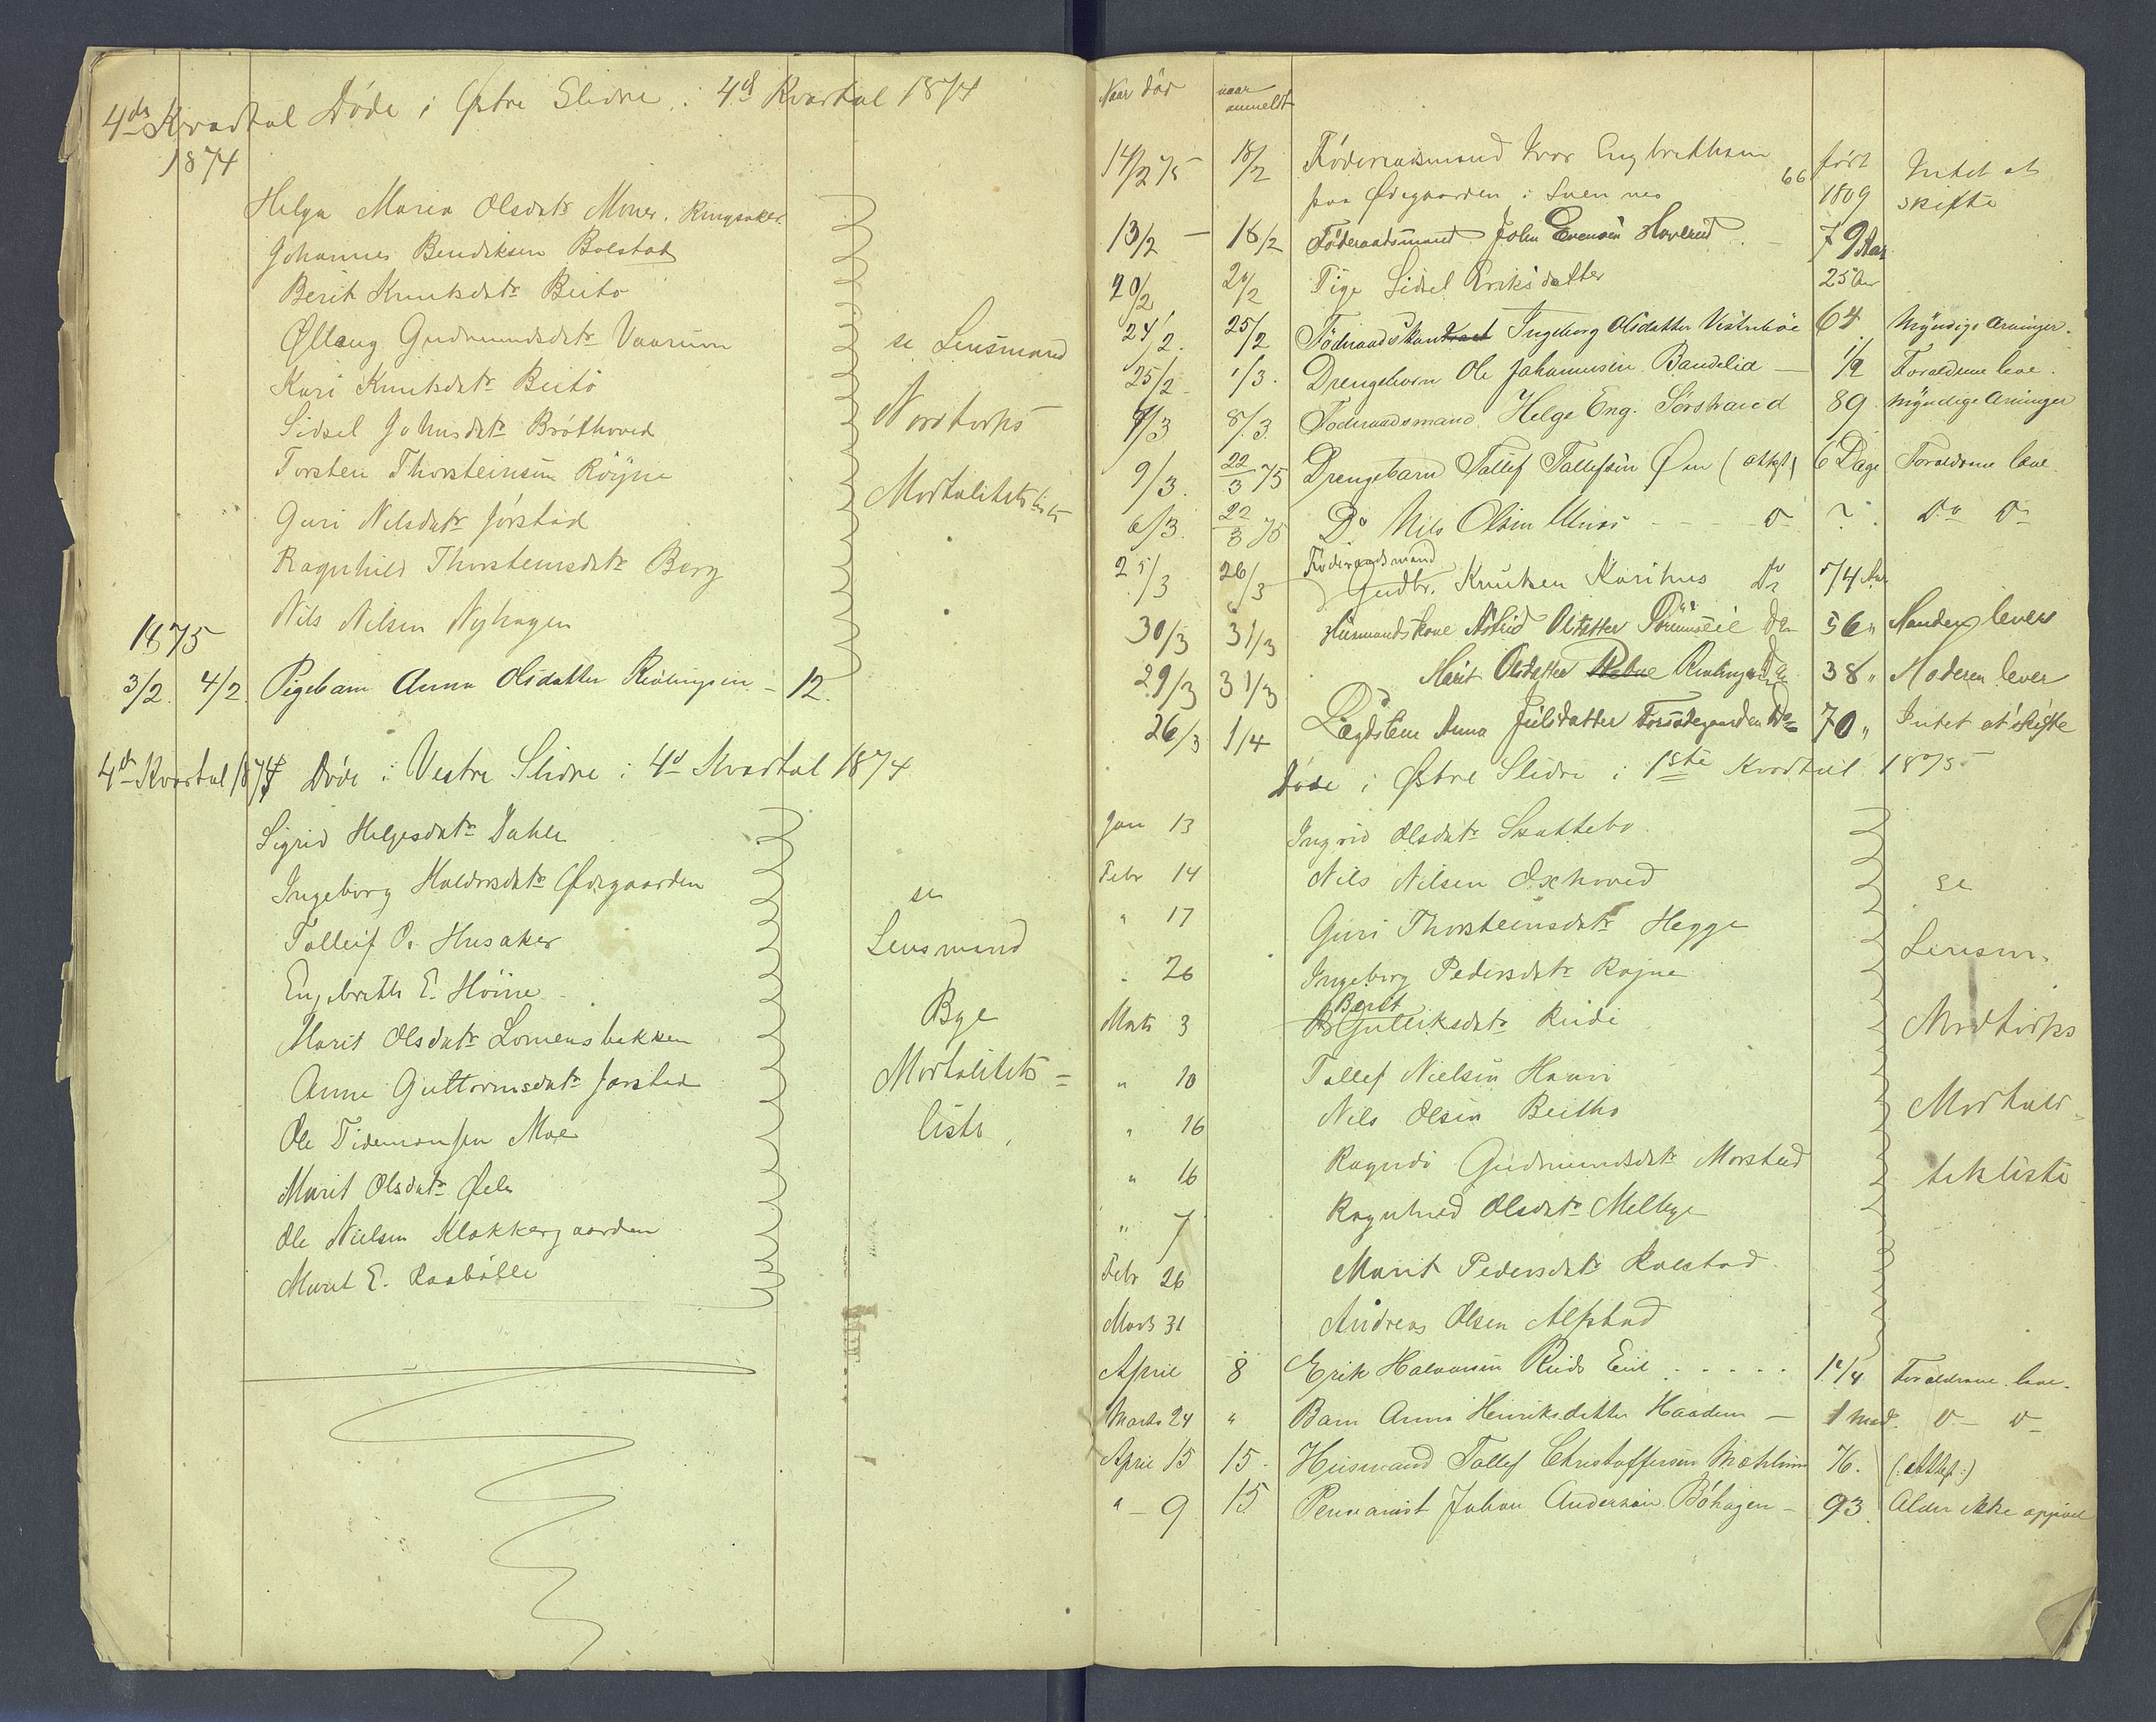 4de Kvartal Døde i Østre Slidre i 4d Kvartal 1874
1874
Helga Maria Olsdatr Moner. Ringsaker
Johannes Bendiksen Bolstad
Berit Knutsdatr Beito
Øllaug Gudmundsdatr Vaarum
Kari Knutsdatr Beito
Sidsel Johnsdatr Bróthoved
Torsten Thorsteinsen Røyne
Guri Nilsdatr Jørstad
Ragnhild Thorsteinsdatr Berg
Nils Nilsen Nyhagen
se Lensmand
Nordtorps
Mortalitetsliste
1875
3/2. 4/2. Pigebarn Anna Olsdatter - 12.
4de Kvartal 1874 Døde i Vestre Slidre i 4d Kvartal 1874
Sigrid Helgesdatr Dahle
Ingeborg Haldorsdatr Ødegaarden
Tolleif O. Husaker
Engebreth E. Høine
Marit Olsdatr Lomensbakken
Anne Guttormsdatr Jarstad
Ole Tidemansen Moe
Marit Olsdatr
Ole Nielsen Klokkergaarden
Marit E.
se
Lensmand
Bye
Mortalitets-
liste
Naar død naar anmeldt
14/2 75 18/2 Føderaadsmand Ivar Engbrethsen født Intet at
paa Ødegaarden i Svennes 66 1809 skifte
13/2 - 18/2 Føderaadsmand John Evensen Hovrud - 79 Aar
20/2 20/2 Pige Sidsel Eriksdatter 25 Aar
24/2. 25/2 Føderaadskone Ingeborg Olsdatter 64 Myndige Arvinger.
25/2 1/3. Drengebarn Ole Johannesen Bandelia - 1/2 Forældrene leve.
8/3. Føderaadsmand Helge Eng. Sørstrand 89 Myndige Arvinger
9/3. 22/3 75 Drengebarn Tollef Tollefsen Øen (attest) 6 Dage Forældrene leve
6/3. 22/3 75 Do Nils Olsen - - D ? Do Do
25/3 26/3 Føderaadsmand Gudbr. Knutsen Karihus Do 74 Aar
30/3 31/3 Husmandskone Astrid Olsdatter Do 56 " Manden lever
29/3 31/3 Marit Olsdatter Do 38 " Moderen lever
26/3 1/4 Lægdslem Anna Juulsdatter Do 70 " Intet at skifte
Døde i Østre Slidre i 1ste Kvartal 1875
Jan 13 Ingrid Olsdatr Skattebo
Febr 14 Nils Nilsen Oxhoved
" 17 Guri Thorsteinsdatr Hegge
" 26 Ingeborg Pedersdatr Røyne
Marts 3 Berit Gulliksdatr Rude
" 10 Tollef Nielsen
" 16 Nils Olsen Beitho
" 16 Ragndi Gudmundsdatr Morstad
" 7 Ragnhild Olsdatr Melbye
Febr 26 Marit Pedersdatr Rolstad
Marts 31 Andreas Olsen Alfstad
se
Lensm.
Nordtorps
Mortali-
tetsliste
April 8 Erik Halvorsen Ruds Eie . . . . . 1 1/4 Forældrene leve.
Marts 24 " Barn Anna Henriksdatter Haadem - 1 Mad. D - D -
April 15 15. Husmand Tollef Christoffersen 76. (: Attest :)
" - 9 15 Johan Andersen Böhagen - 93. Alder ikke opgivet